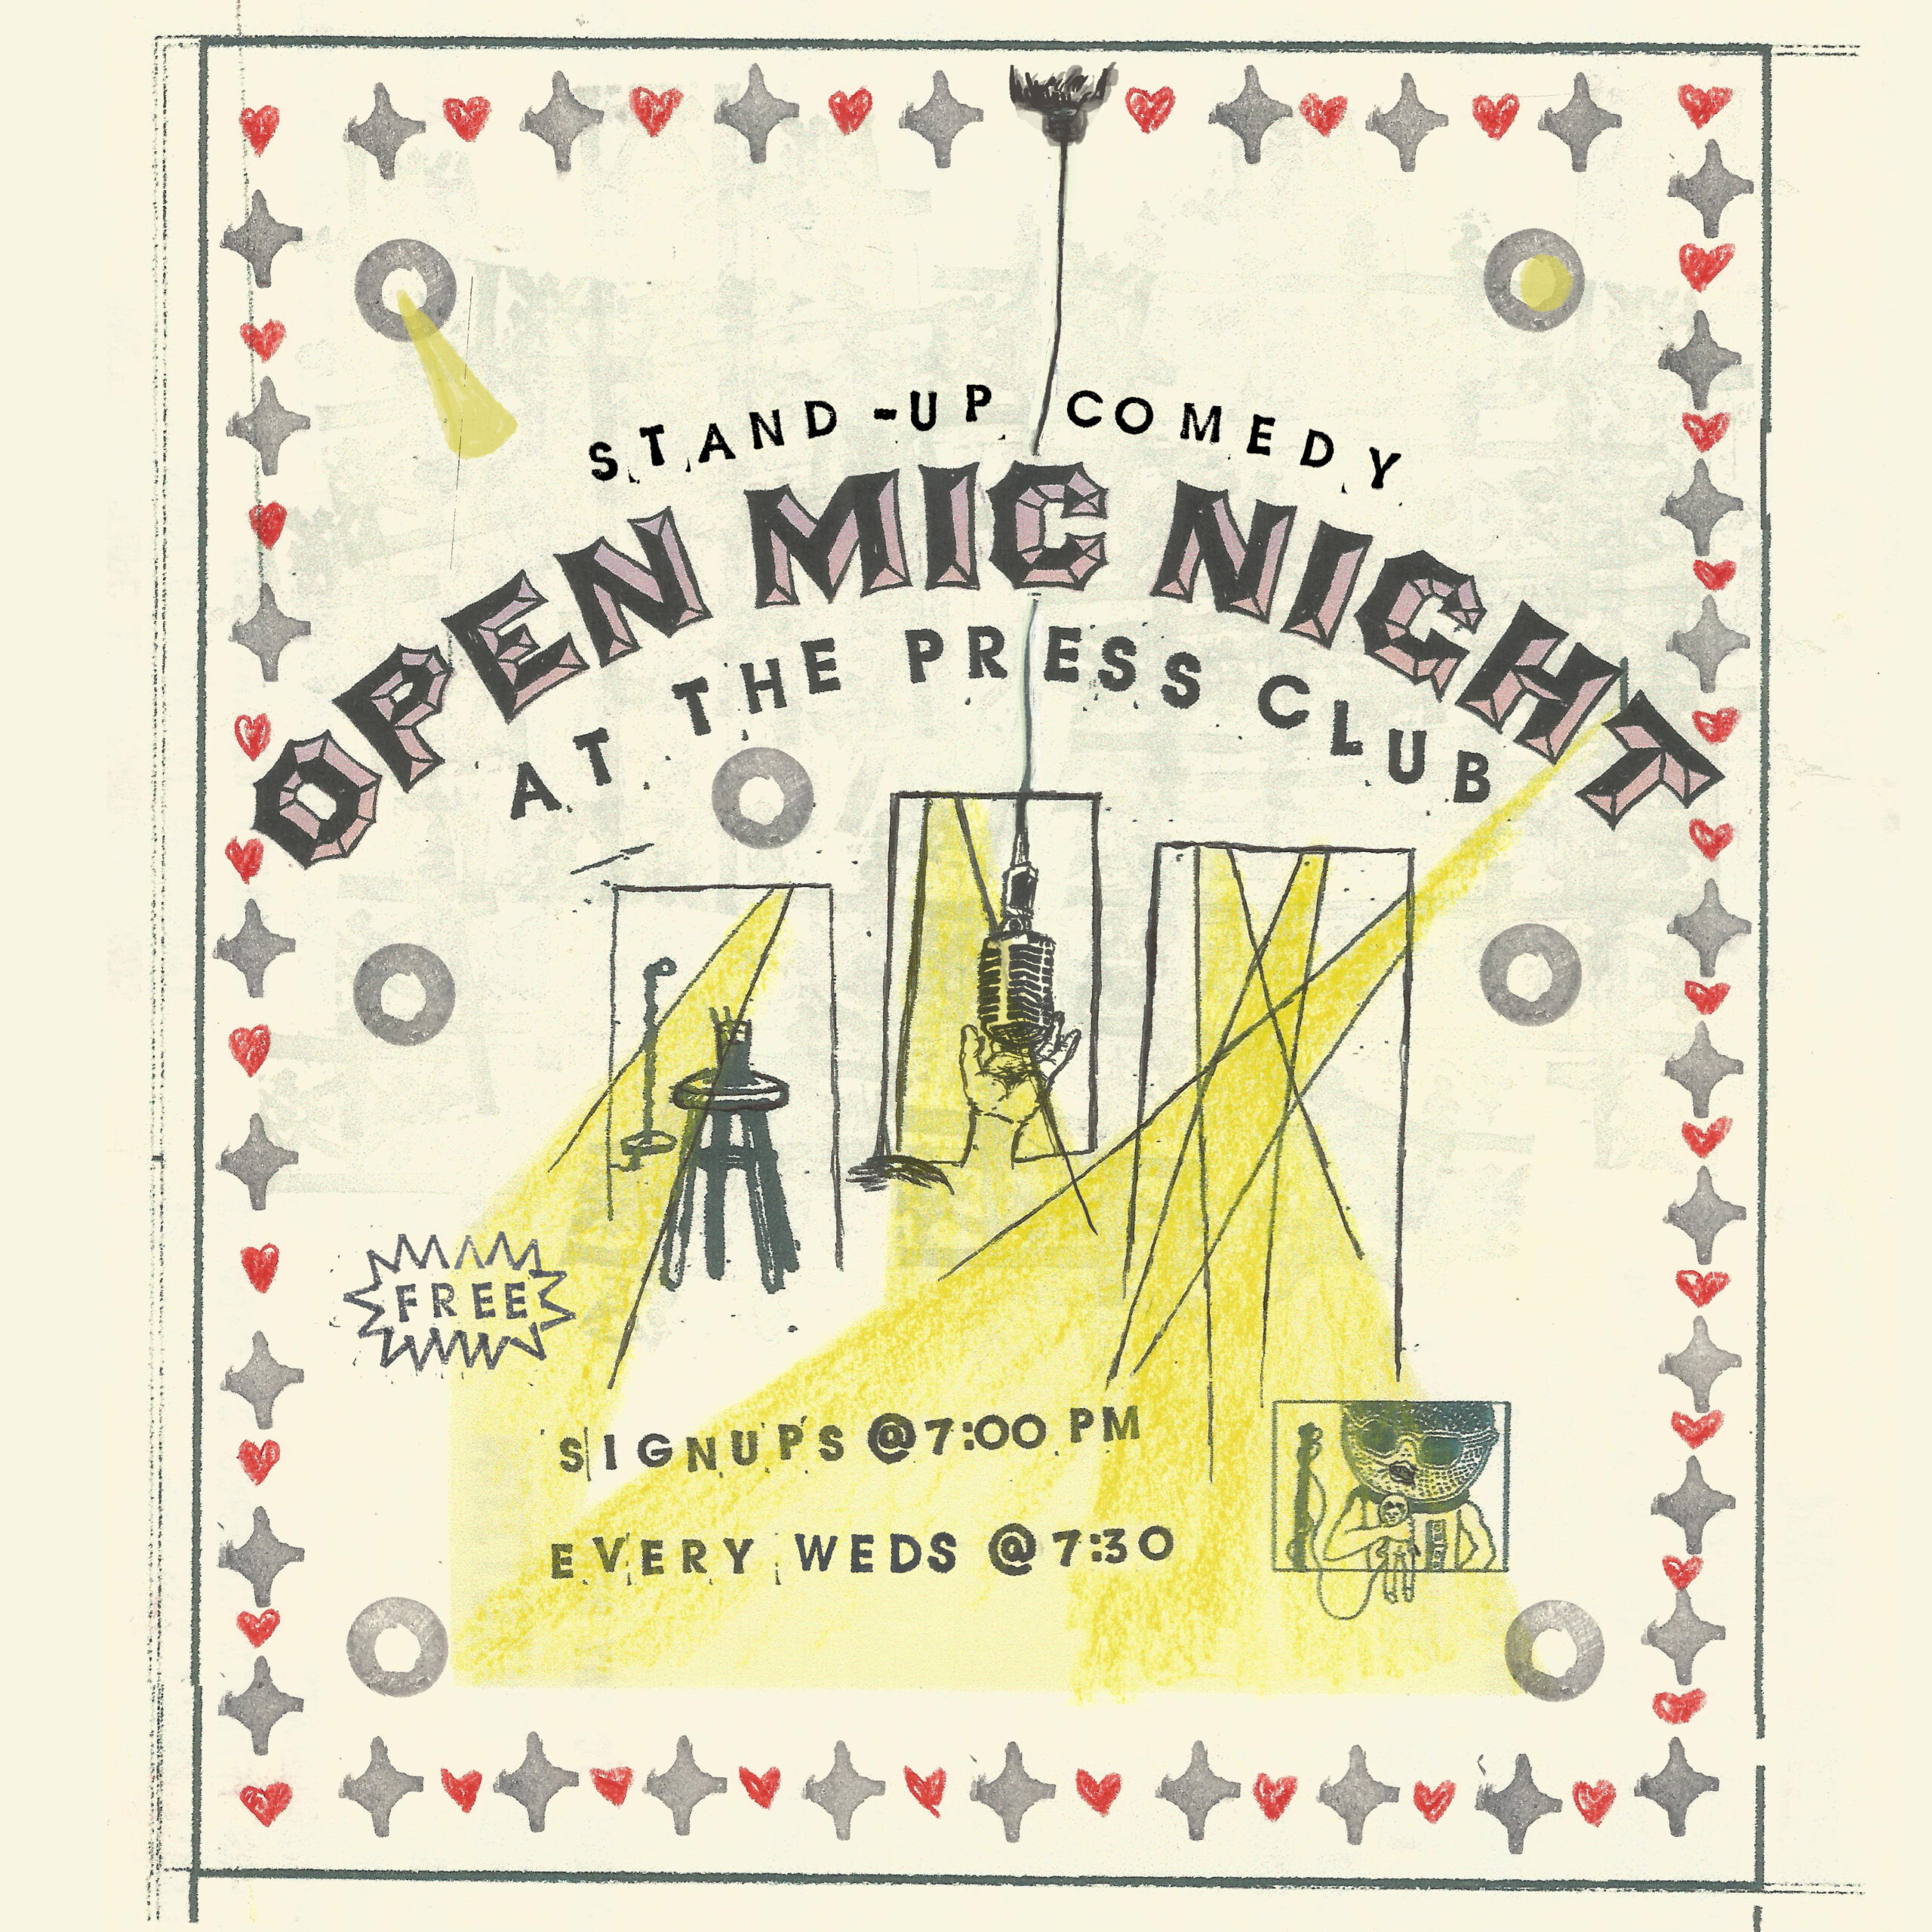 STAND-UP COMEDY
OPEN MIC NIGHT
AT THE PRESS CLUB
FREE
SIGNUPS @7:00 PM
EVERY WEDS @7:30